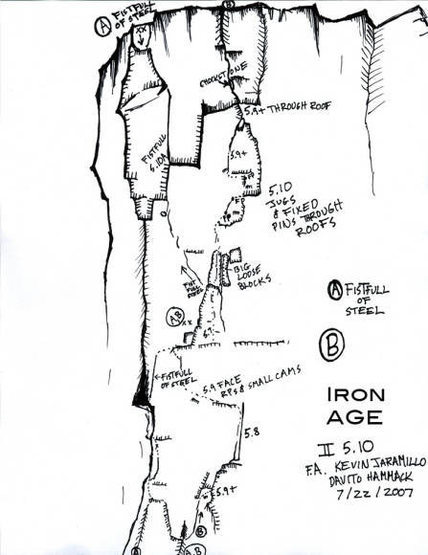 B
A
FISTFULL
OF STEEL
XX
CHOCKSTONE
5.9+ THROUGH ROOF
FISTFULL
5.10A
5.9+
5.10
JUGS
& FIXED
PINS THROUGH
ROOFS
FP
FP
BIG
LOOSE
BLOCKS
A FISTFULL
OF
STEEL
AB
XX
B
IRON
AGE
← FISTFULL
OF STEEL
5.9 FACE
RPS & SMALL CAMS
5.8
II 5.10
F.A. KEVIN JARAMILLO
DAVITO HAMMACK
7/22/2007
5.9+
B
A
AB